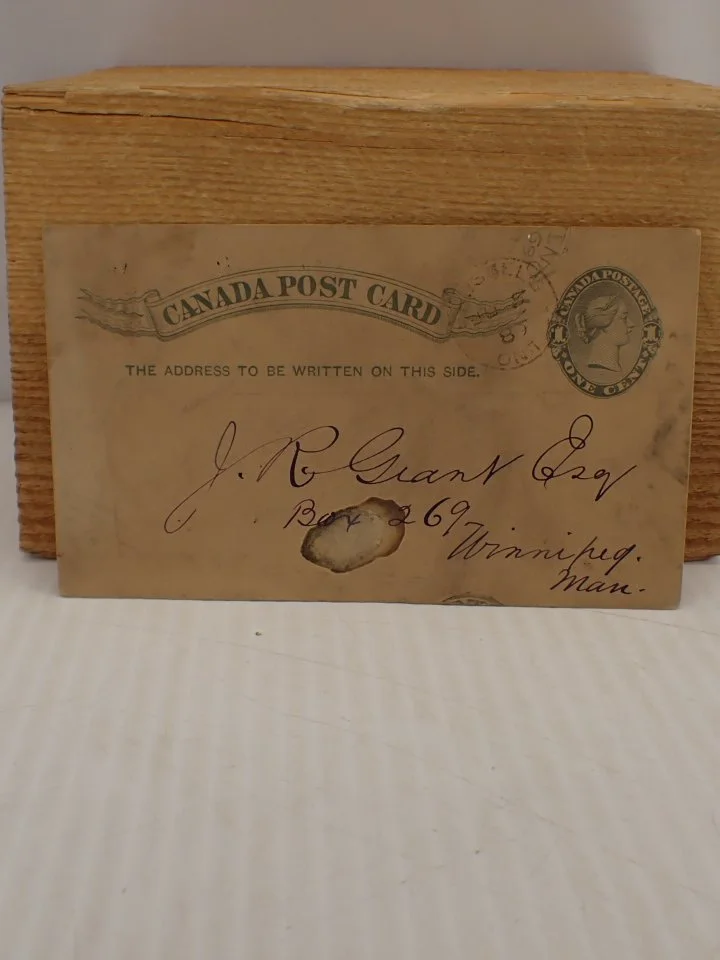 CANADA POST CARD
CANADA POSTAGE
1 1
ONE CENT
THE ADDRESS TO BE WRITTEN ON THIS SIDE.
ONT
J. R. Grant Esq
Box 269
Winnipeg.
Man.